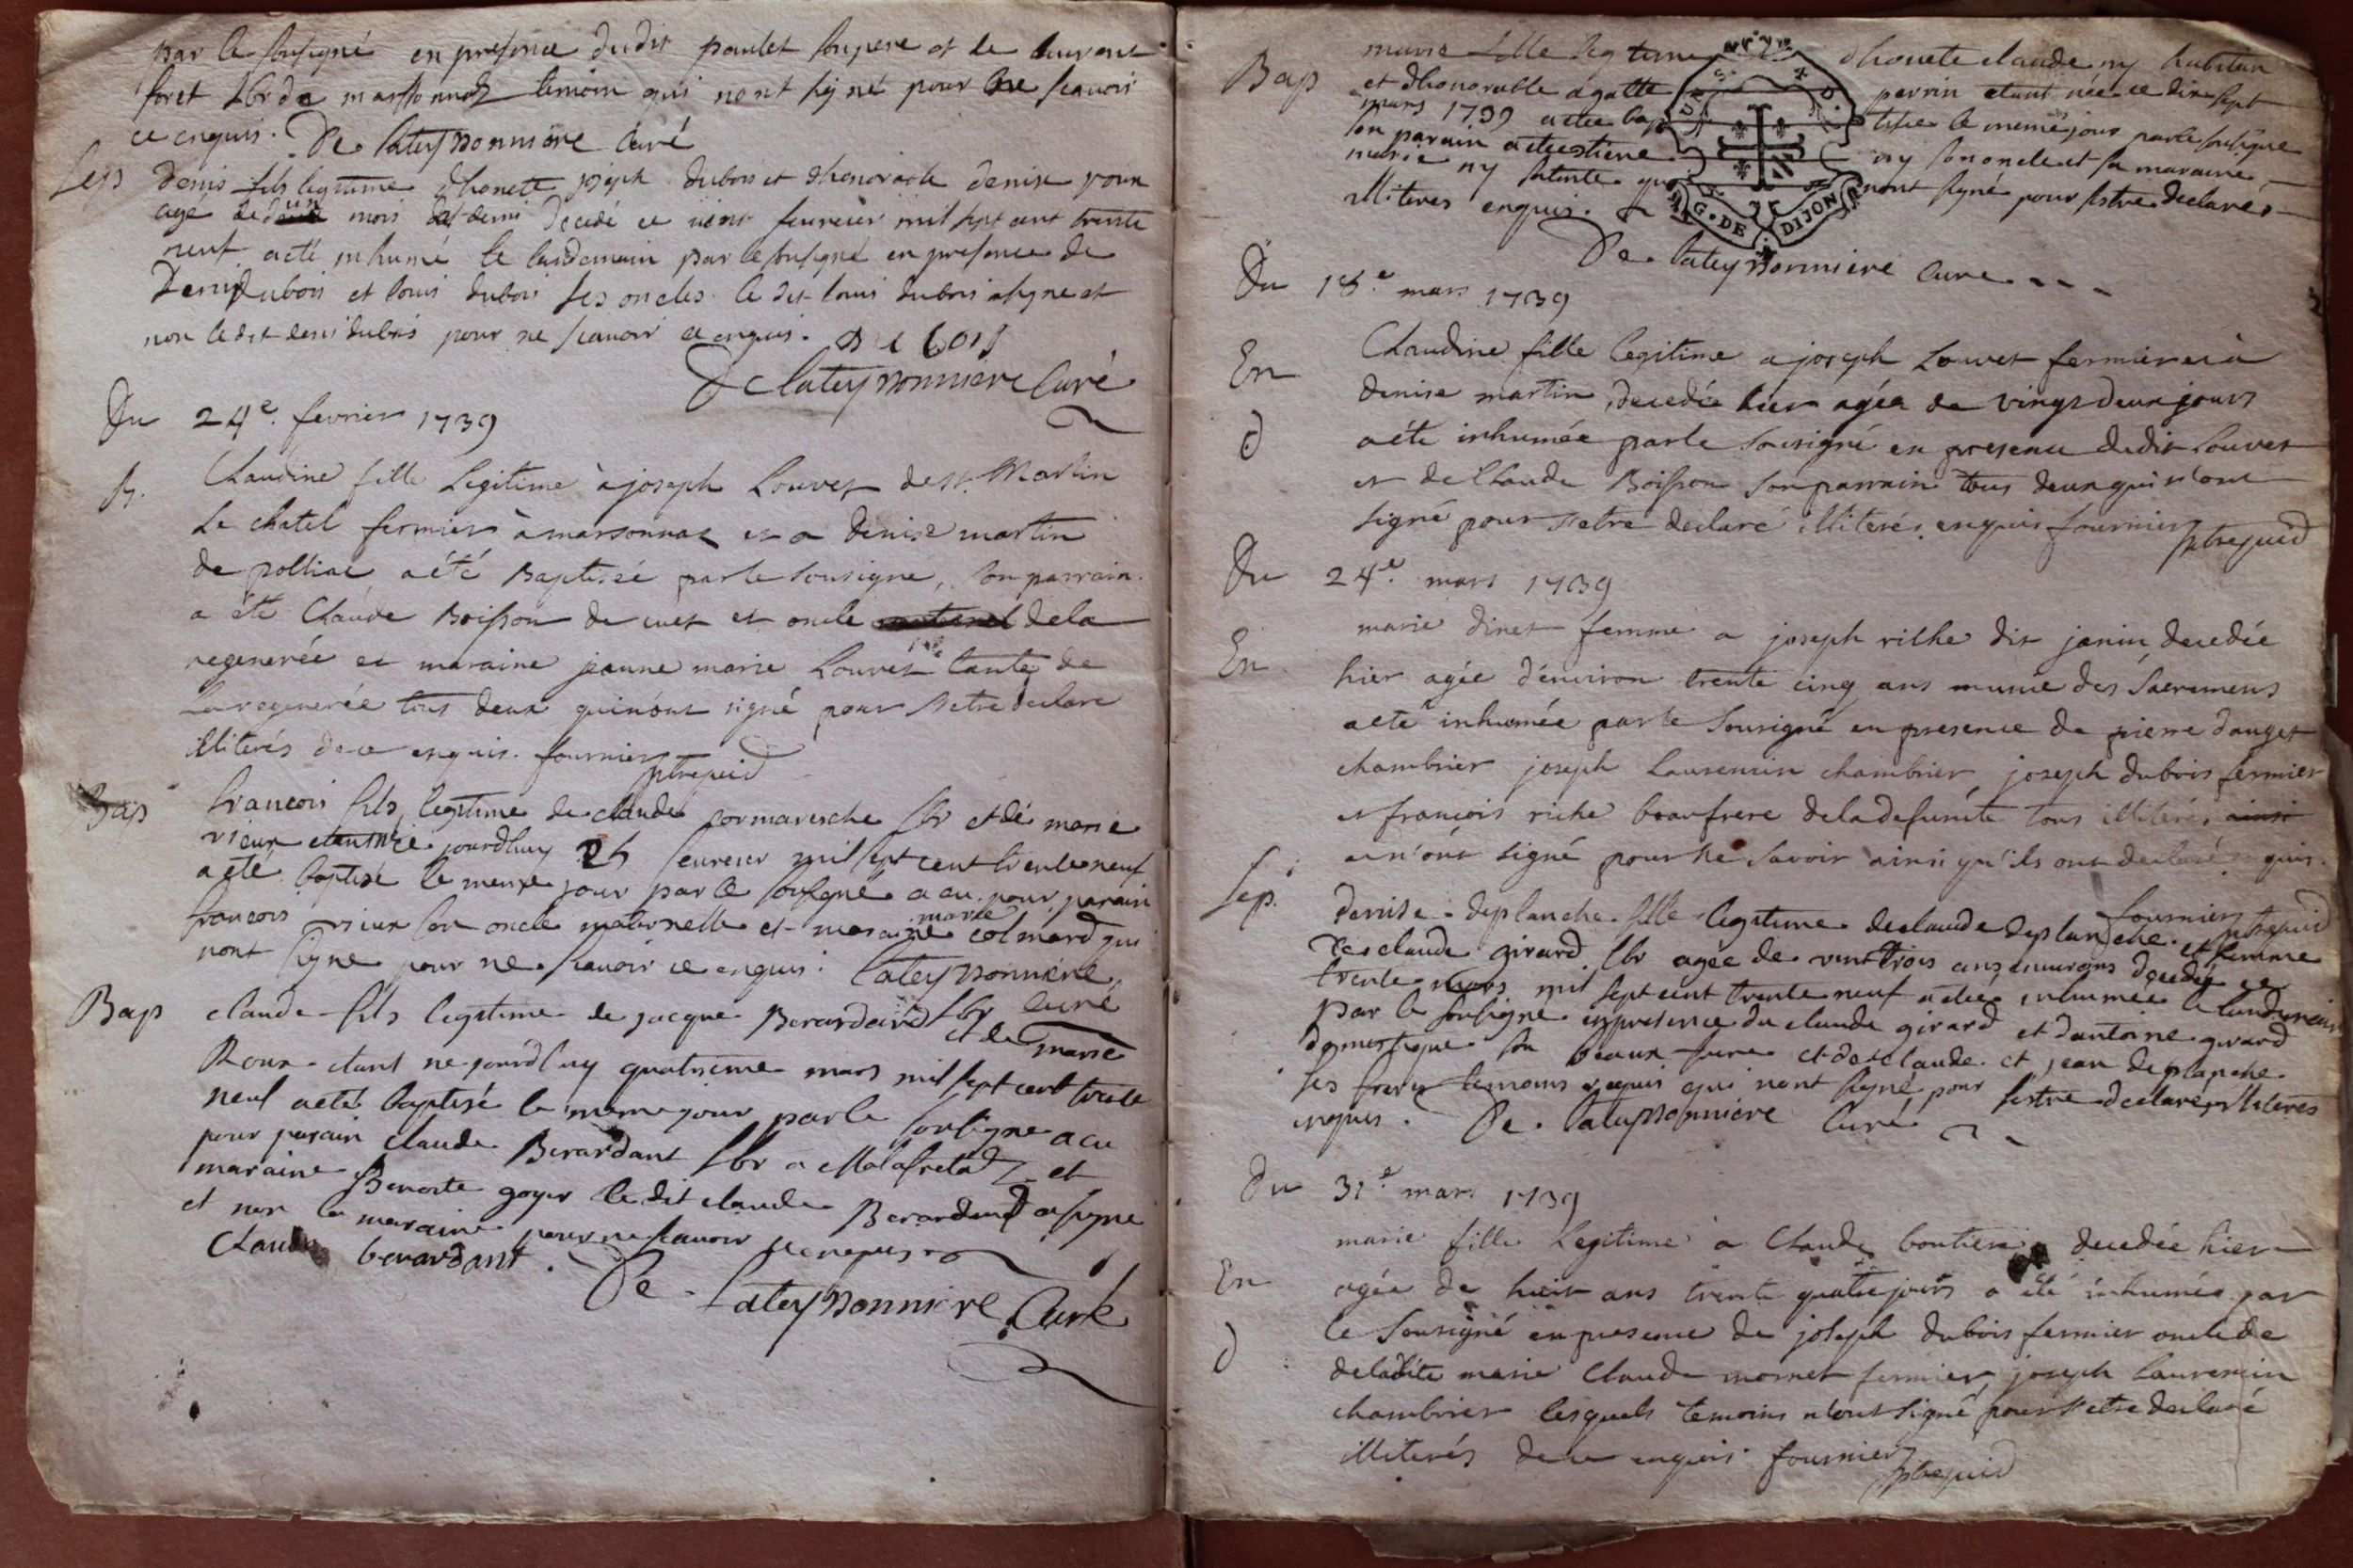 par le sousigné en presence dudit paulet son pere et de laurent
foret lbr de marsonnaz temoin qui nont signé pour ne scavoir
ce enquis. De lateyssonniere Curé
Sep Denis fils legitime dhonete joseph dubois et dhonorable denise roux
agé de un mois et demi decedé ce vient feuvrier mil sept cent trente
neuf a eté inhumé le landemain par le sousigné en presence de
Denis dubois et louis dubois ses oncles le dit louis dubois a signe et
non le dit denis dubois pour ne scavoir ce enquis. D l bois
De lateyssonniere Curé
Du 24e. fevrier 1739
B. Claudine fille Legitime à joseph Louvet de st. Martin
Le chatel fermier à marsonnaz et a denise martin
de polliac a été Baptisée par le sousigné, son parrain
a été Claude Boisson de cuet et oncle de la
regenerée et maraine jeanne marie Louvet tante de
La regenerée tous deux qui n'ont signé pour s'etre declaré
illiterés de ce enquis. fournier ptre
Bap francois fils legitime de claude cormaresche lbr et de marie
vieux etant né jourdhuy 26 feuvrier mil sept cent trente neuf
a eté baptisé le meme jour par le sousigné a eu pour parain
francois vieux son oncle maternelle et maraine marie colmard qui
nont signe pour ne scavoir ce enquis. lateyssonniere
curé
Bap claude fils legitime de jacque Berardant lbr et de marie
Roux etant ne jourdhuy quatrieme mars mil sept cent trente
neuf a eté baptisé le meme jour par le sousigne a eu
pour parain claude Berardant lbr a Malafretaz et
maraine Benoite goyer le dit claude Berardant a signe
et non la maraine pour ne scavoir ce enquis
Claude berardant. De Lateyssonniere Curé
Bap marie fille legitime dhonete claude ny habitan
et dhonorable agatte perrin etant née ce dix sept
mars 1739 a eté baptisée le meme jour par le sousigne
son parain a eté estiene ny son oncle et sa maraine
marie ny sa tante qui nont signé pour s'estre declarés
illiteres enquis.
G. DE DIJON
De lateyssonniere Cure
Du 18e mars 1739
En Claudine fille legitime a joseph Louvet fermier et à
denise martin, decedée hier agée de vingt deux jours
d a été inhumée par le sousigné en presence dudit Louvet
et de Claude Boisson son parrain tous deux qui n'ont
signé pour s'etre declaré illiterés enquis fournier ptre
Du 24e. mars 1739
En marie dinet femme a joseph rilhe dit janin decedée
hier agée d'environ trente cinq ans munie des Sacremens
a eté inhumée par le sousigné en presence de pierre danget
chambrier joseph Laurencin chambrier, joseph dubois fermier
et francois riche beaufrere de la defunte tous illiterés
et n'ont signé pour ne savoir ainsi qu'ils ont declaré
fournier ptre
Sep. denise deplanche fille legitime de claude deplanche et femme
de claude girard lbr agée de vint trois ans environs decedée ce
trente mars mil sept cent trente neuf a eté inhumée le landemain
par le sousigne en presence du claude girard et dantoine girard
domestique son beaux frere et de claude et jean deplanche
ses freres temoins requis qui nont signé pour sestre declarés illiteres
enquis. De lateyssonniere Curé
Du 31e mars 1739
marie fille Legitime a Claude boutier decedée hier
En agée de huit ans trente quatre jours a été inhumée par
le Sousigné en presence de joseph dubois fermier oncle de
d de ladite marie Claude mornet fermier, joseph Laurencin
chambrier lesquels temoins n'ont signé pour s'etre declaré
illiterés de ce enquis. fournier
ptre